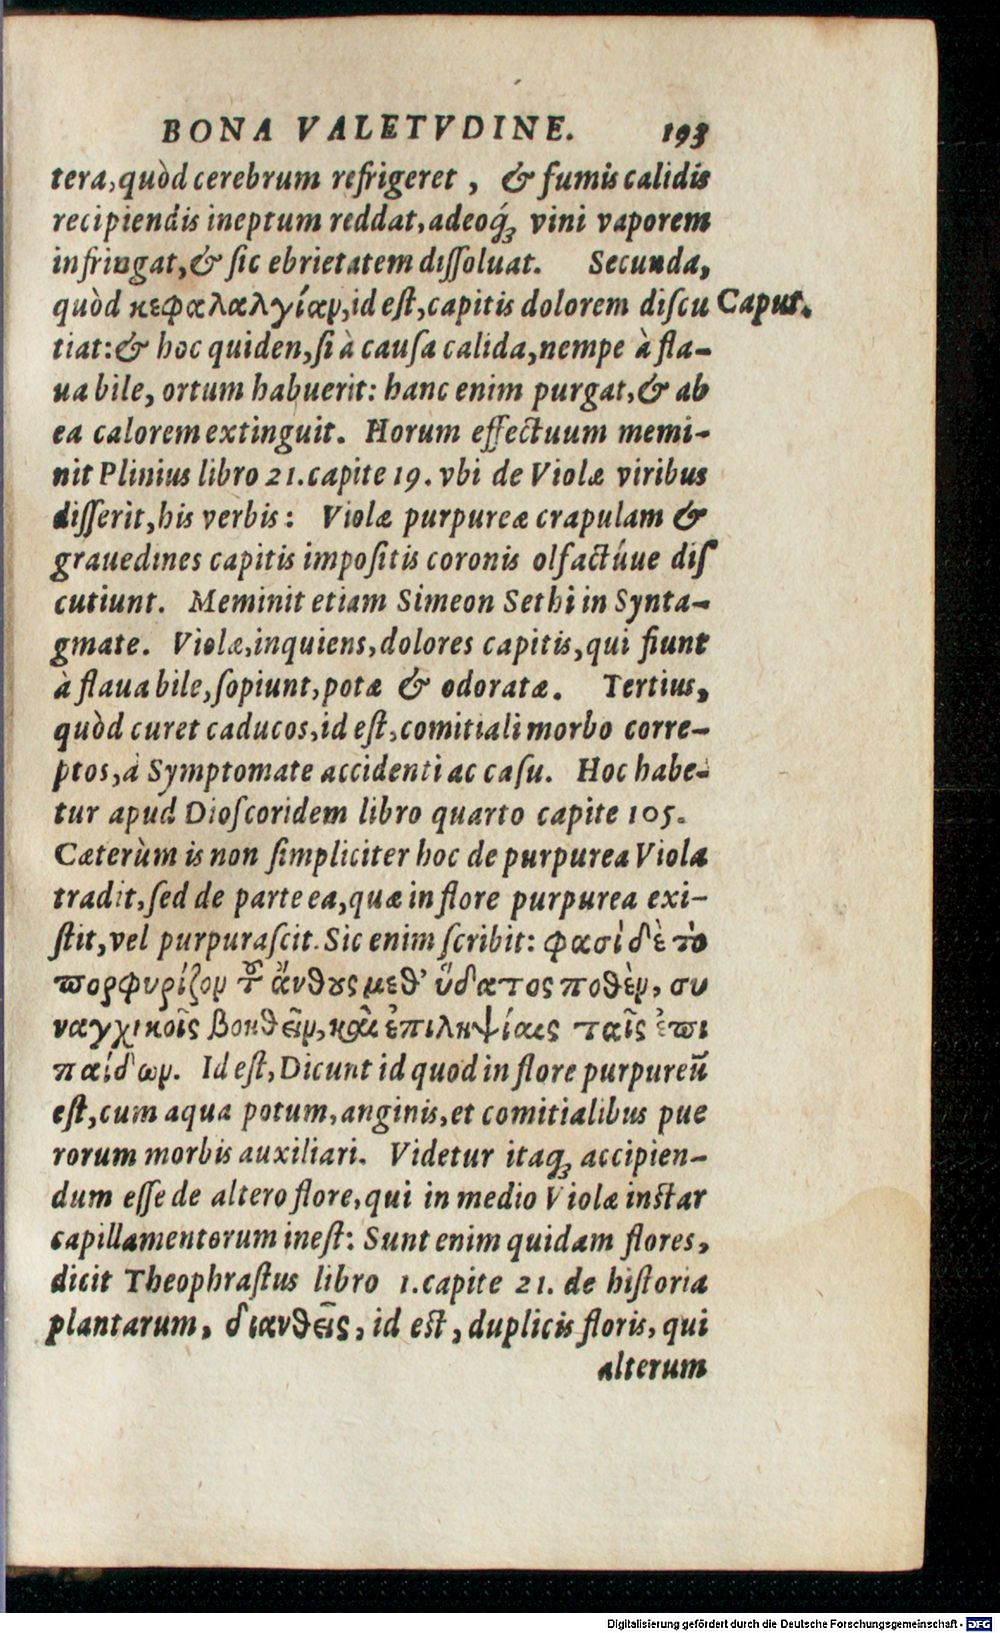 BONA VALETVDINE. 193
tera, quòd cerebrum refrigeret, & fumis calidis
recipiendis ineptum reddat, adeoq́ꝫ vini vaporem
infringat, & ſic ebrietatem diſſoluat. Secunda,
quòd κεφαλαλγίαν, id eſt, capitis dolorem diſcu Caput.
tiat: & hoc quiden, ſi à cauſa calida, nempe à fla-
ua bile, ortum habuerit: hanc enim purgat, & ab
ea calorem extinguit. Horum effectuum memi-
nit Plinius libro 21. capite 19. vbi de Violæ viribus
diſſerit, his verbis: Violæ purpureæ crapulam &
grauedines capitis impoſitis coronis olfactúue diſ
cutiunt. Meminit etiam Simeon Sethi in Synta-
gmate. Violæ, inquiens, dolores capitis, qui fiunt
à flaua bile, ſopiunt, potæ & odoratæ. Tertius,
quòd curet caducos, id eſt, comitiali morbo corre-
ptos, à Symptomate accidenti ac caſu. Hoc habe-
tur apud Dioſcoridem libro quarto capite 105.
Cæterùm is non ſimpliciter hoc de purpurea Viola
tradit, ſed de parte ea, quæ in flore purpurea exi-
ſtit, vel purpuraſcit. Sic enim ſcribit: φασὶ δὲ τὸ
πορφυρίζον τ͂ ἄνθȣς μεθ’ ὕδατος ποθὲν, συ
ναγχικοῖς βοηθεῖν, καὶ ἐπιληψίαις ταῖς ἐπι
παίδων. Id eſt, Dicunt id quod in flore purpureũ
eſt, cum aqua potum, anginis, et comitialibus pue
rorum morbis auxiliari. Videtur itaqꝫ accipien-
dum eſſe de altero flore, qui in medio Violæ inſtar
capillamentorum ineſt: Sunt enim quidam flores,
dicit Theophraſtus libro 1. capite 21. de hiſtoria
plantarum, διανθεῖς, id eſt, duplicis floris, qui
alterum
Digitalisierung gefördert durch die Deutsche Forschungsgemeinschaft - DFG